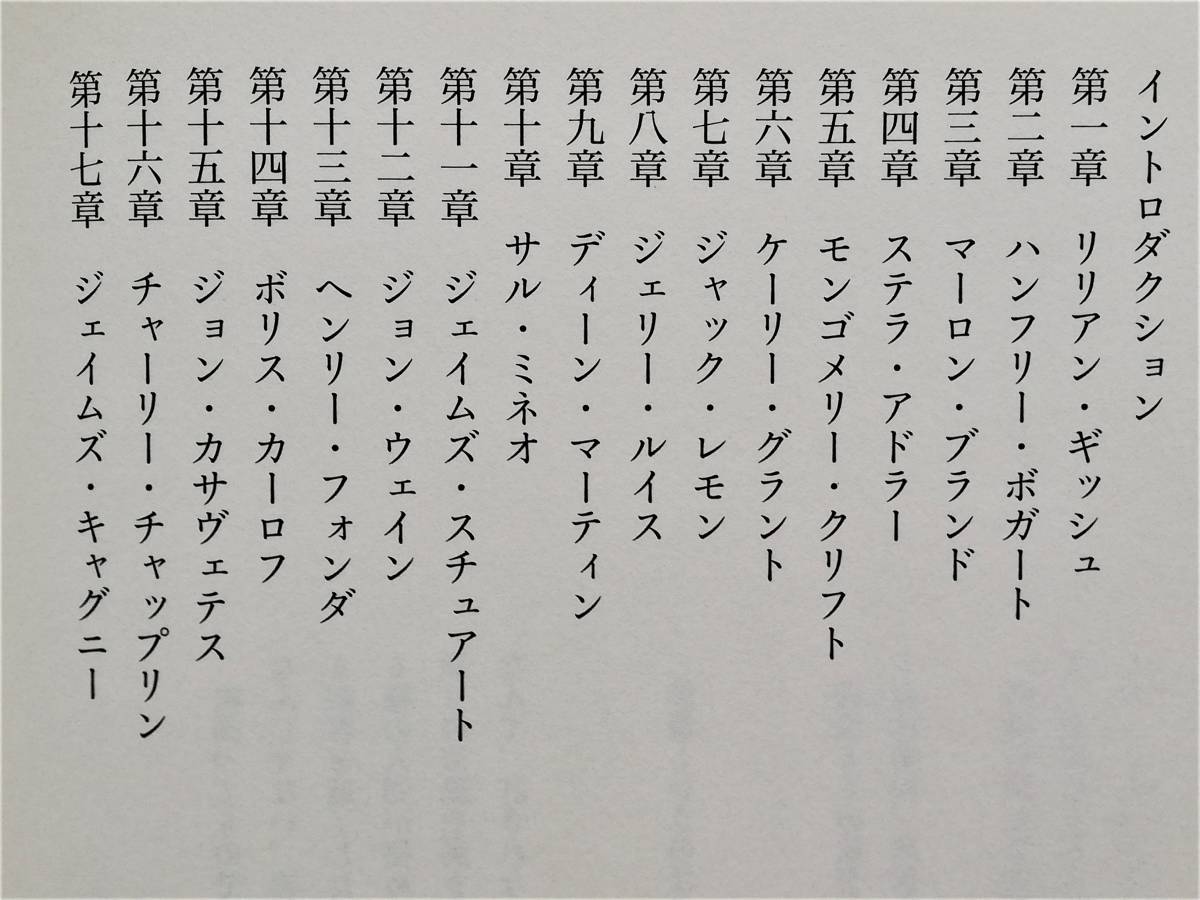 イントロダクション
第一章　リリアン・ギッシュ
第二章　ハンフリー・ボガート
第三章　マーロン・ブランド
第四章　ステラ・アドラー
第五章　モンゴメリー・クリフト
第六章　ケーリー・グラント
第七章　ジャック・レモン
第八章　ジェリー・ルイス
第九章　ディーン・マーティン
第十章　サル・ミネオ
第十一章　ジェイムズ・スチュアート
第十二章　ジョン・ウェイン
第十三章　ヘンリー・フォンダ
第十四章　ボリス・カーロフ
第十五章　ジョン・カサヴェテス
第十六章　チャーリー・チャップリン
第十七章　ジェイムズ・キャグニー